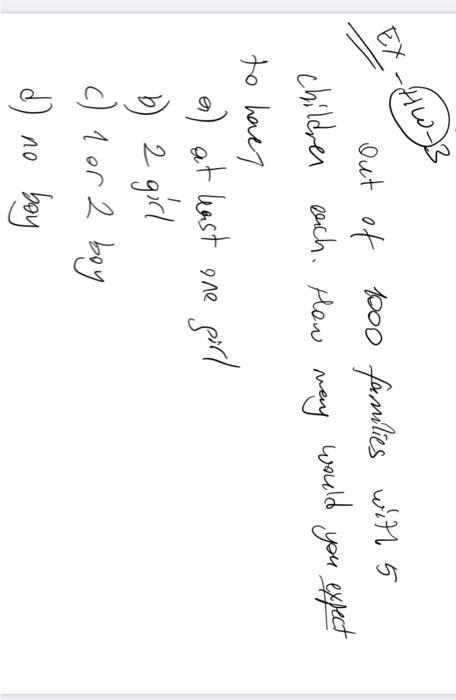 EX - HW-3
Out of 1000 families with 5
children each. How many would you expect
to have,
a) at least one girl
b) 2 girl
c) 1 or 2 boy
d) no boy